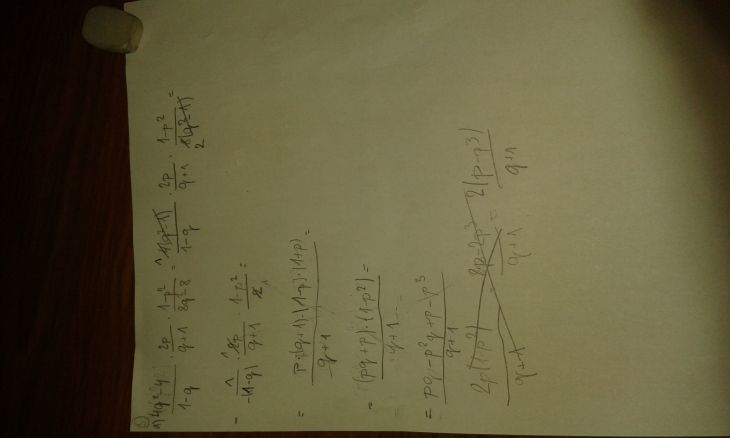 1) (4q²-4)/(1-q) · 2p/(q+1) · (1-p²)/(8q²-8) = 4(q²-1)/(1-q) · 2p/(q+1) · (1-p²)/8(q²-1) =
1/-(1-q) · 2p/(q+1) · (1-p²)/2 =
= p·(q+1)·(1-p)·(1+p)/(q+1) =
= (pq+p)·(1-p²)/(q+1) =
= pq-p²q+p-p³/(q+1)
2p(1-p²)/(q+1) = 2p-2p³/(q+1) = 2(p-p³)/(q+1)